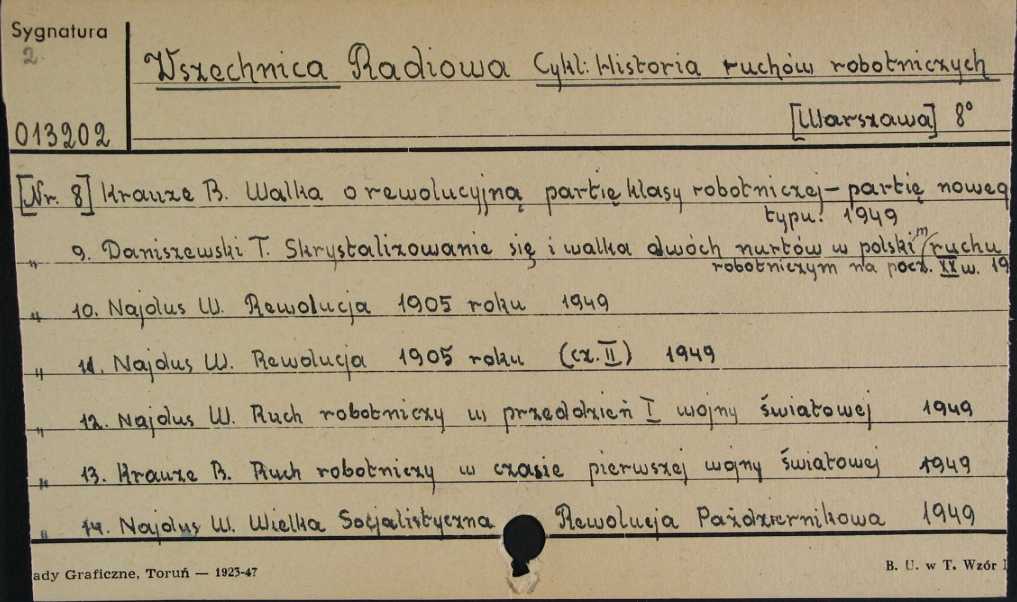 Sygnatura
2
013202
Wszechnica Radiowa Cykl: Historia ruchów robotniczych
[Warszawa] 8°
[Nr. 8] Krauze B. Walka o rewolucyjną partię klasy robotniczej - partię noweg
typu. 1949
" 9. Daniszewski T. Skrystalizowanie się i walka dwóch nurtów w polskim ruchu
robotniczym na pocz. XX w. 19
" 10. Najdus W. Rewolucja 1905 roku 1949
" 11. Najdus W. Rewolucja 1905 roku (cz. II) 1949
" 12. Najdus W. Ruch robotniczy w przeddzień I wojny światowej 1949
" 13. Krauze B. Ruch robotniczy w czasie pierwszej wojny światowej 1949
" 14. Najdus W. Wielka Socjalistyczna Rewolucja Październikowa 1949
ady Graficzne, Toruń — 1923-47
B. U. w T. Wzór